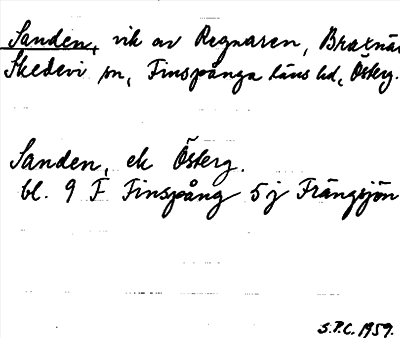 Sanden, vik av Regnaren, Braxnä
Skedevi sn, Finspånga läns hd, Österg.
Sanden, ek Österg.
bl. 9 F Finspång 5 j Frängsjön
S.P.C. 1959.